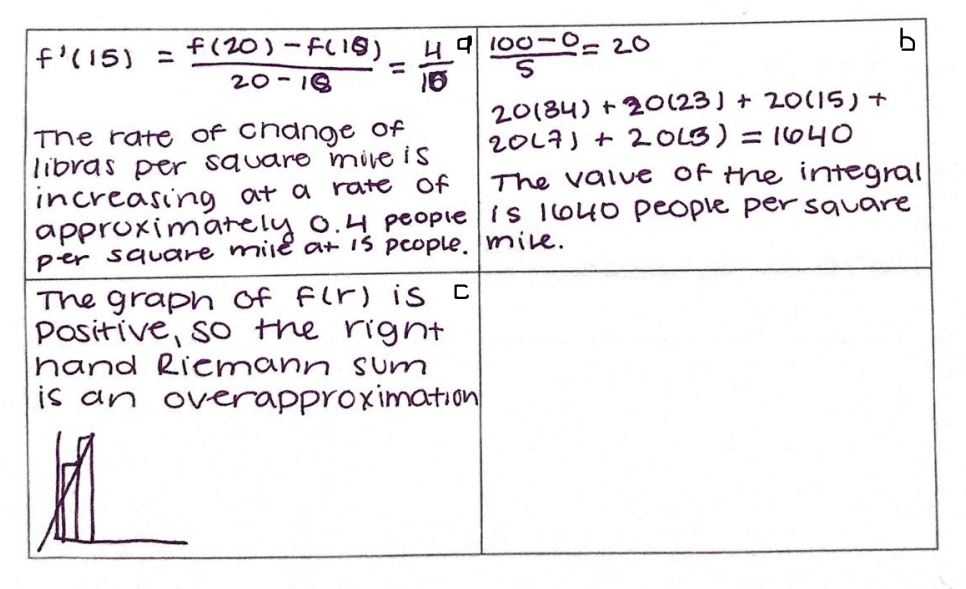 a
f'(15) = f(20) - f(10) / 20 - 10 = 4/10
The rate of change of
libras per square mile is
increasing at a rate of
approximately 0.4 people
per square mile at 15 people.
b
100-0 / 5 = 20
20(84) + 20(23) + 20(15) +
20(7) + 20(3) = 1640
The value of the integral
is 1640 people per square
mile.
c
The graph of f(r) is
positive, so the right
hand Riemann sum
is an overapproximation